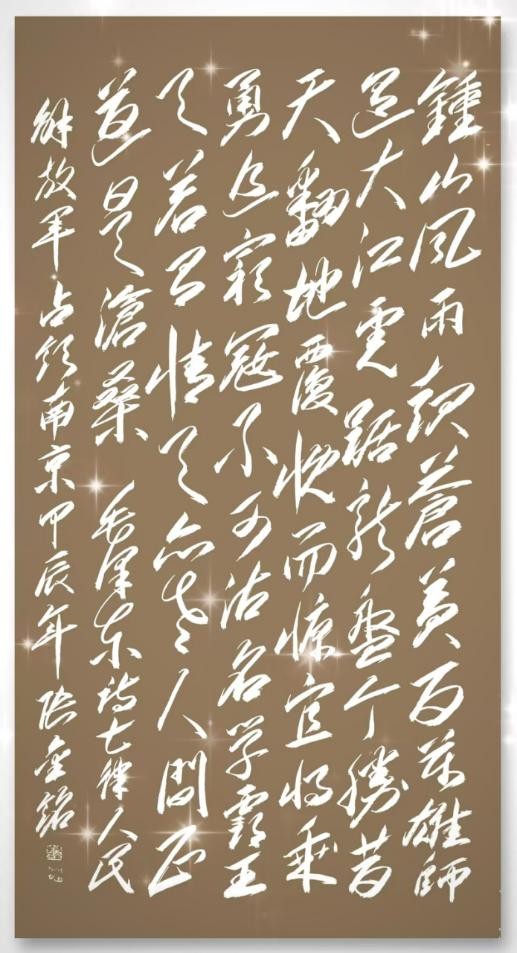 鍾山风雨起蒼黄百万雄師
過大江虎踞龙盘今勝昔
天翻地覆慨而慷宜将乘
勇追窮寇不可沽名学霸王
天若有情天亦老人間正
道是滄桑 毛泽东诗七律人民
解放军占领南京甲辰年